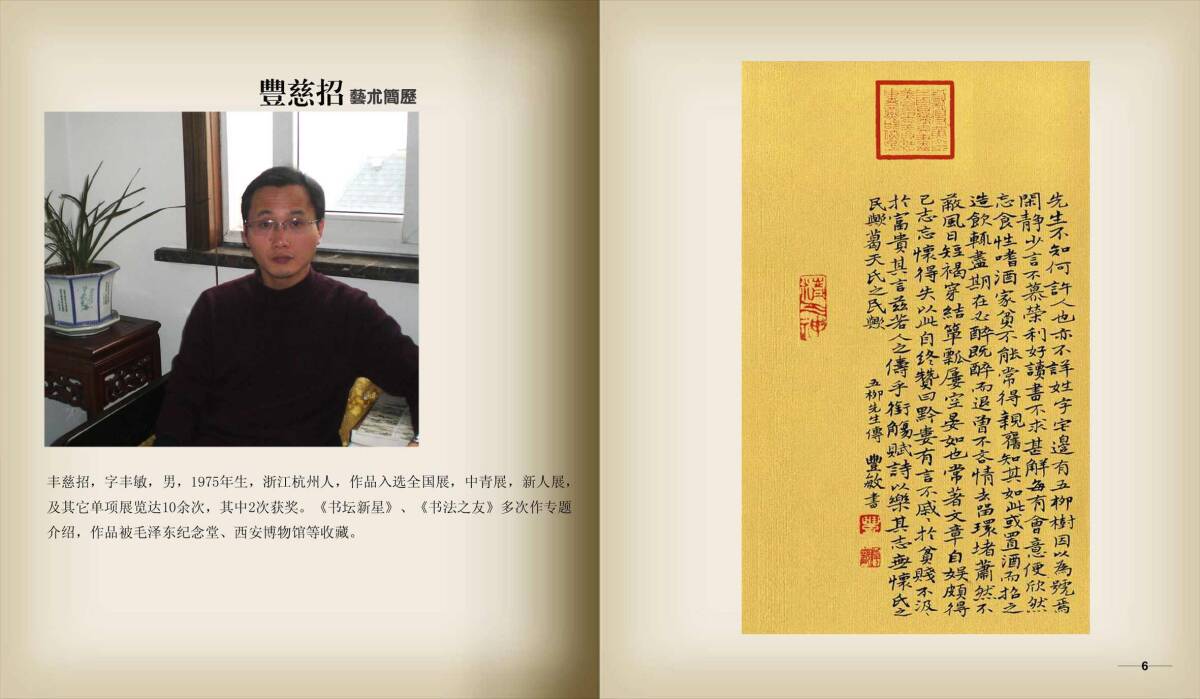 豐慈招 藝朮簡歷
丰慈招，字丰敏，男，1975年生，浙江杭州人，作品入选全国展，中青展，新人展，
及其它单项展览达10余次，其中2次获奖。《书坛新星》、《书法之友》多次作专题
介绍，作品被毛泽东纪念堂、西安博物馆等收藏。
先生不知何許人也亦不詳姓字宅邊有五柳樹因以為號焉
閑靜少言不慕榮利好讀書不求甚解每有會意便欣然
忘食性嗜酒家貧不能常得親舊知其如此或置酒而招之
造飲輒盡期在必醉既醉而退曾不吝情去留環堵蕭然不
蔽風日短褐穿結簞瓢屢空晏如也常著文章自娛頗得
己志忘懷得失以此自終贊曰黔婁有言不戚、於貧賤不汲、
於富貴其言茲若人之儔乎銜觴賦詩以樂其志無懷氏之
民歟葛天氏之民歟
五柳先生傳 豐敏書
6